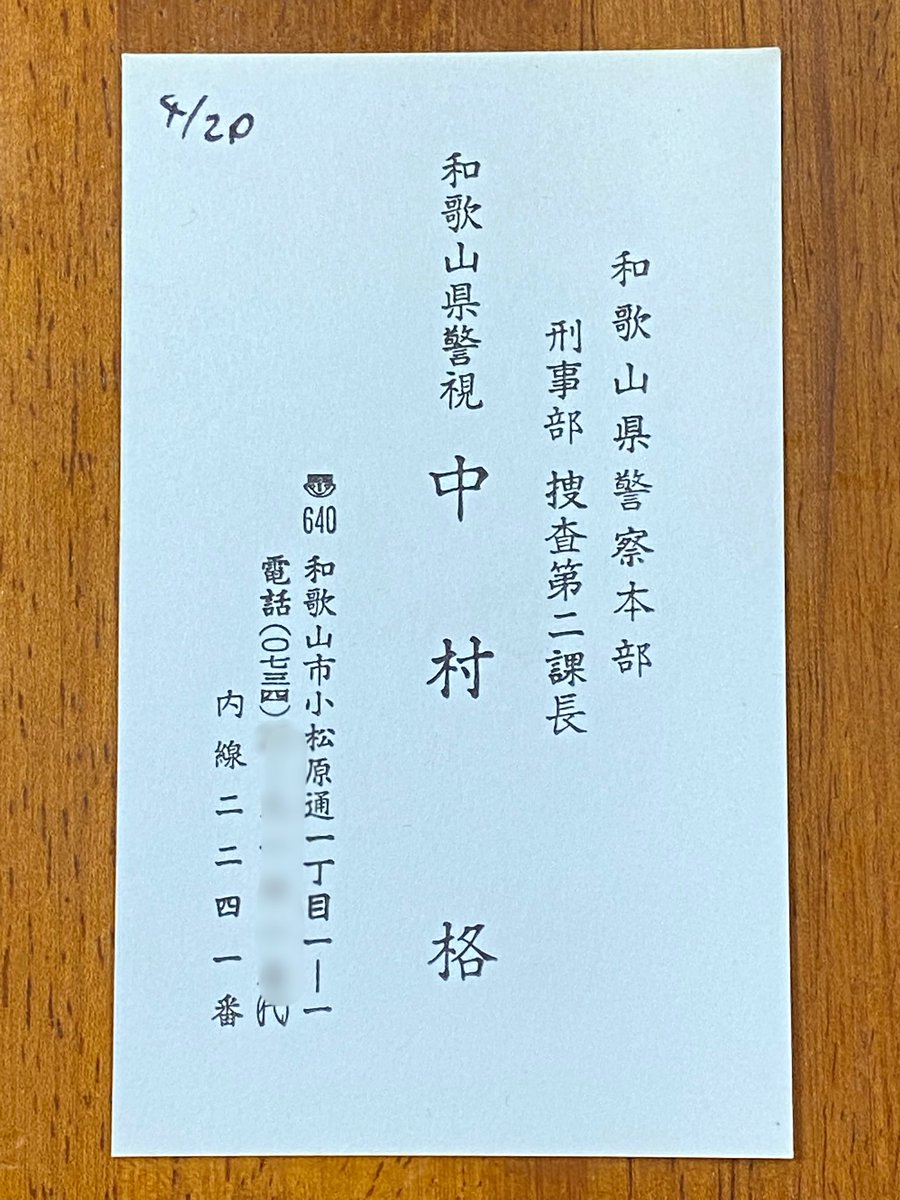 4/20
和歌山県警察本部
刑事部 捜査第二課長
和歌山県警視 中村 格
640 和歌山市小松原通一丁目一—一
電話(〇七三四)
内線二二四一番